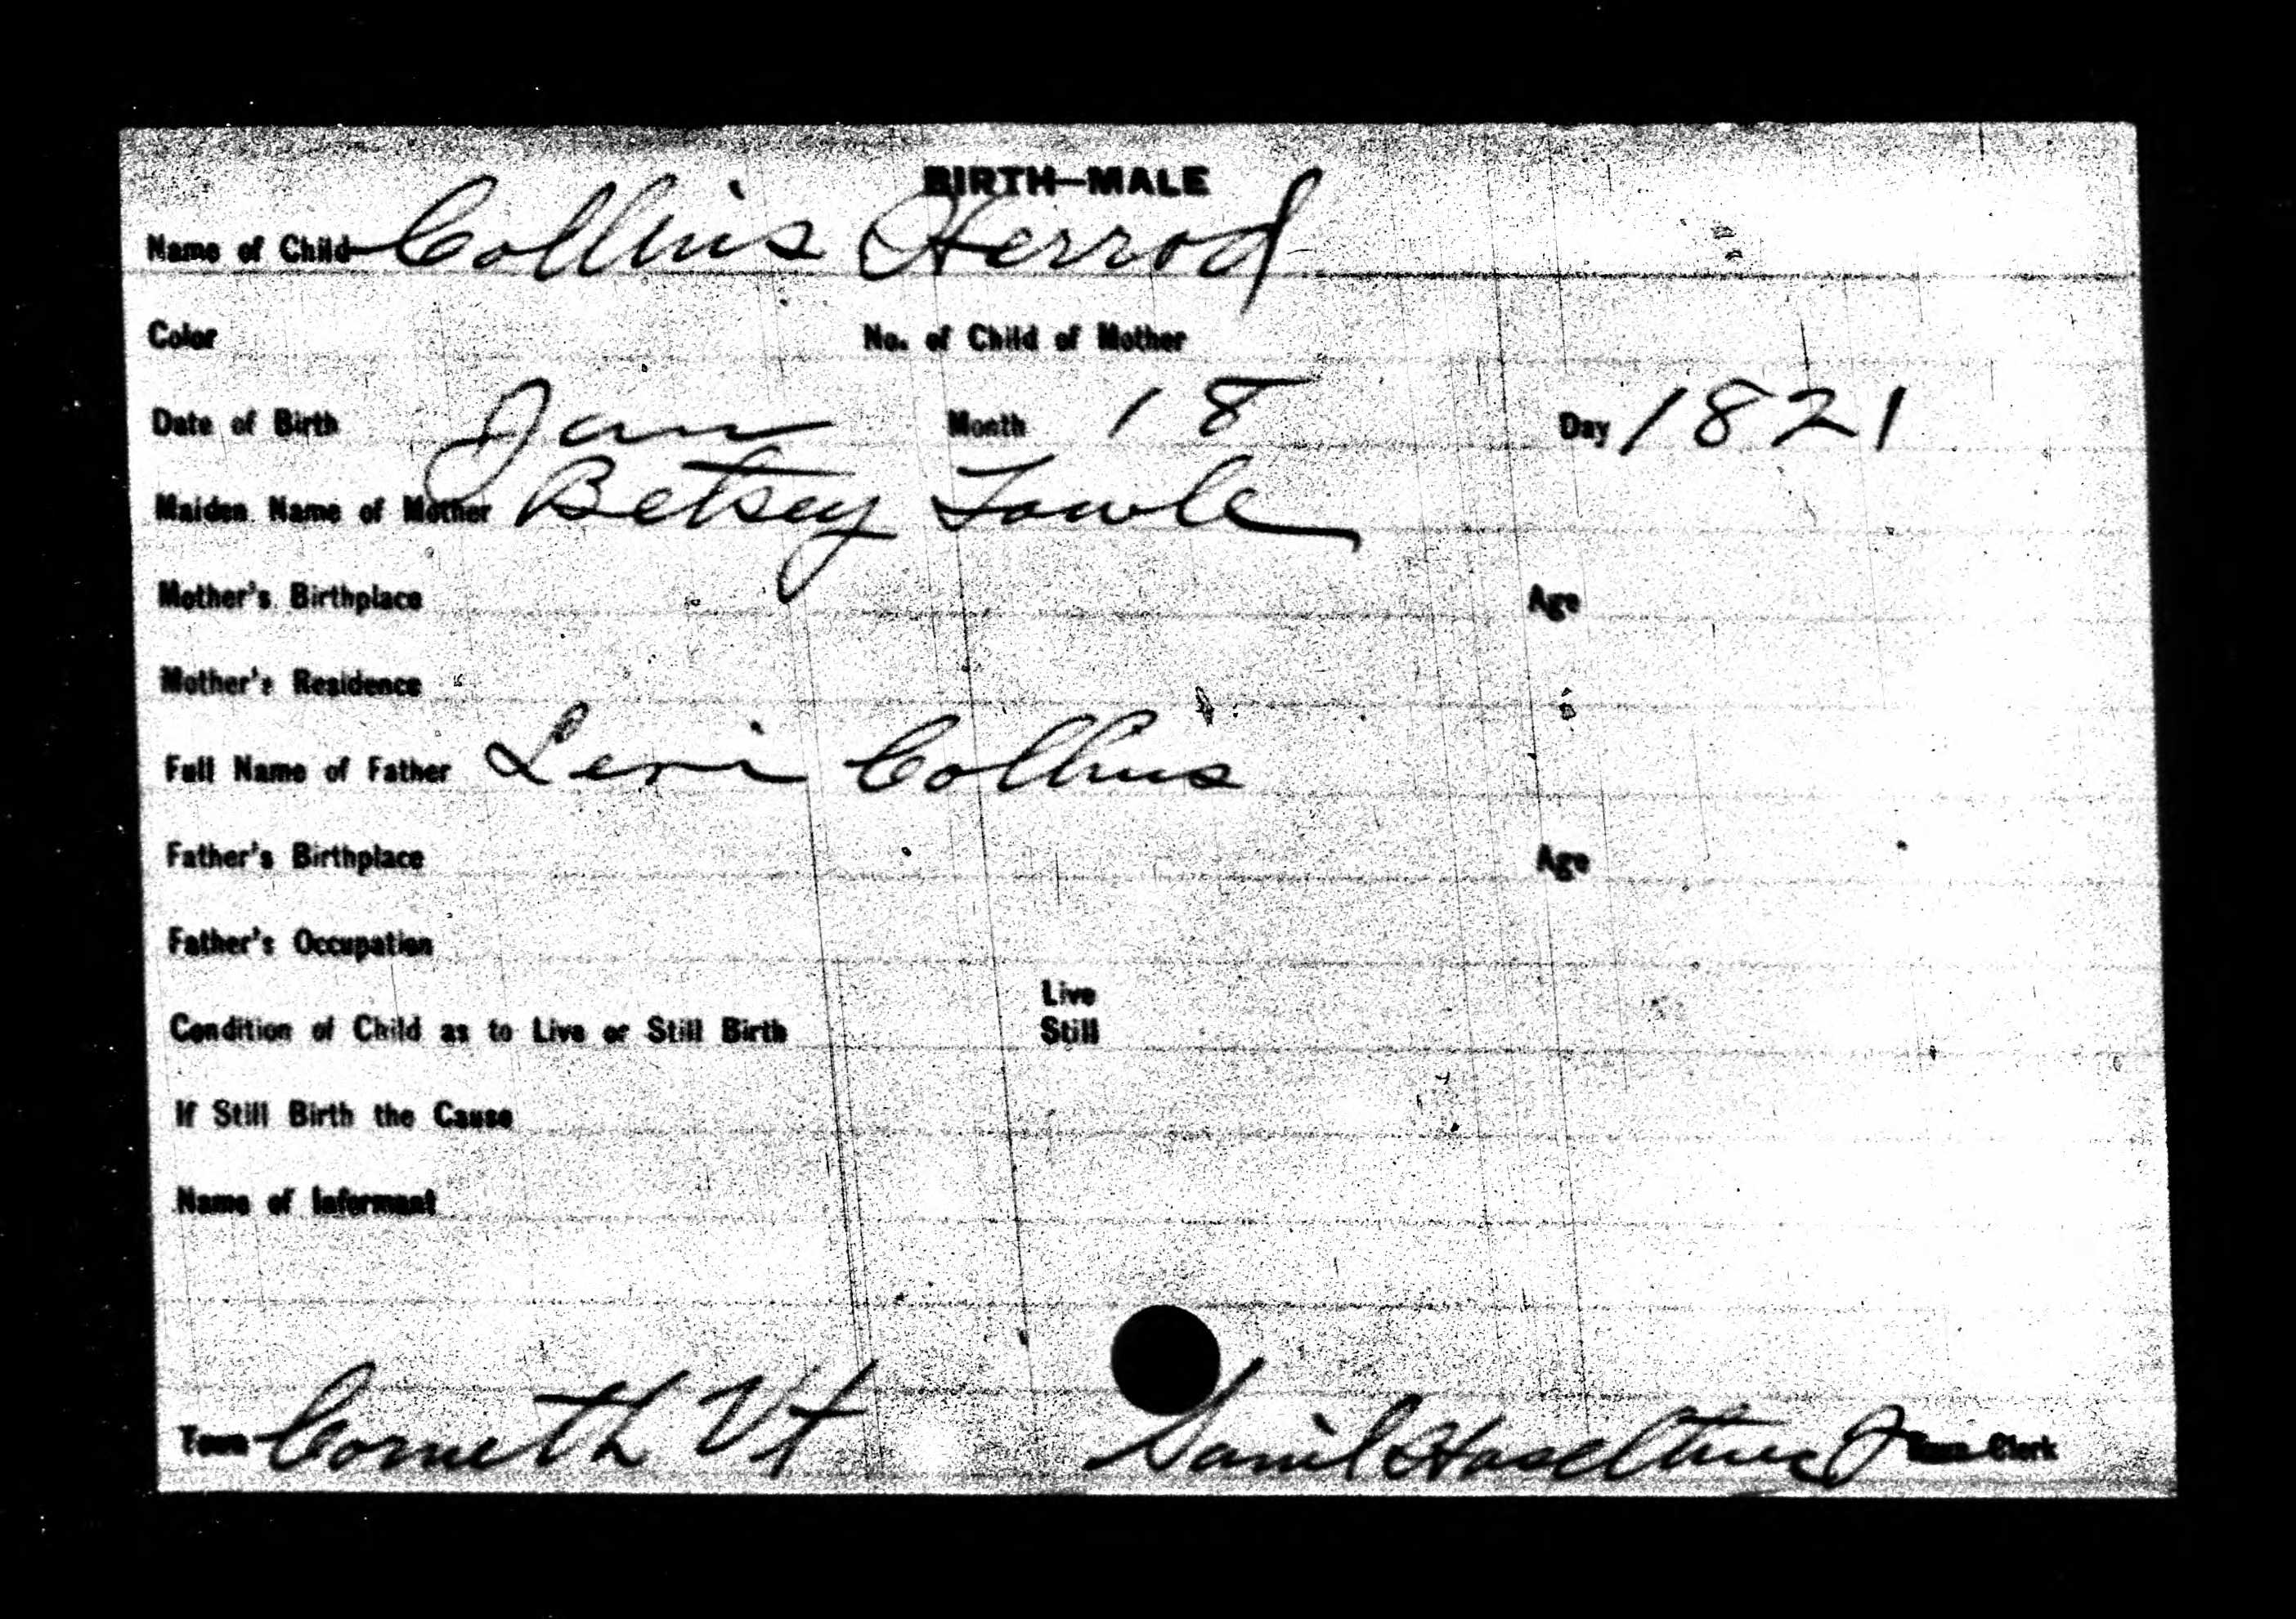 BIRTH—MALE
Name of Child Collins Herrod
Color No. of Child of Mother
Date of Birth Jan Month 18 Day 1821
Maiden Name of Mother Betsey Towle
Mother's Birthplace Age
Mother's Residence
Full Name of Father Levi Collins
Father's Birthplace Age
Father's Occupation
Live
Condition of Child as to Live or Still Birth Still
If Still Birth the Cause
Name of Informant
Town Corneth Vt Saml Haseltine Jr Town Clerk